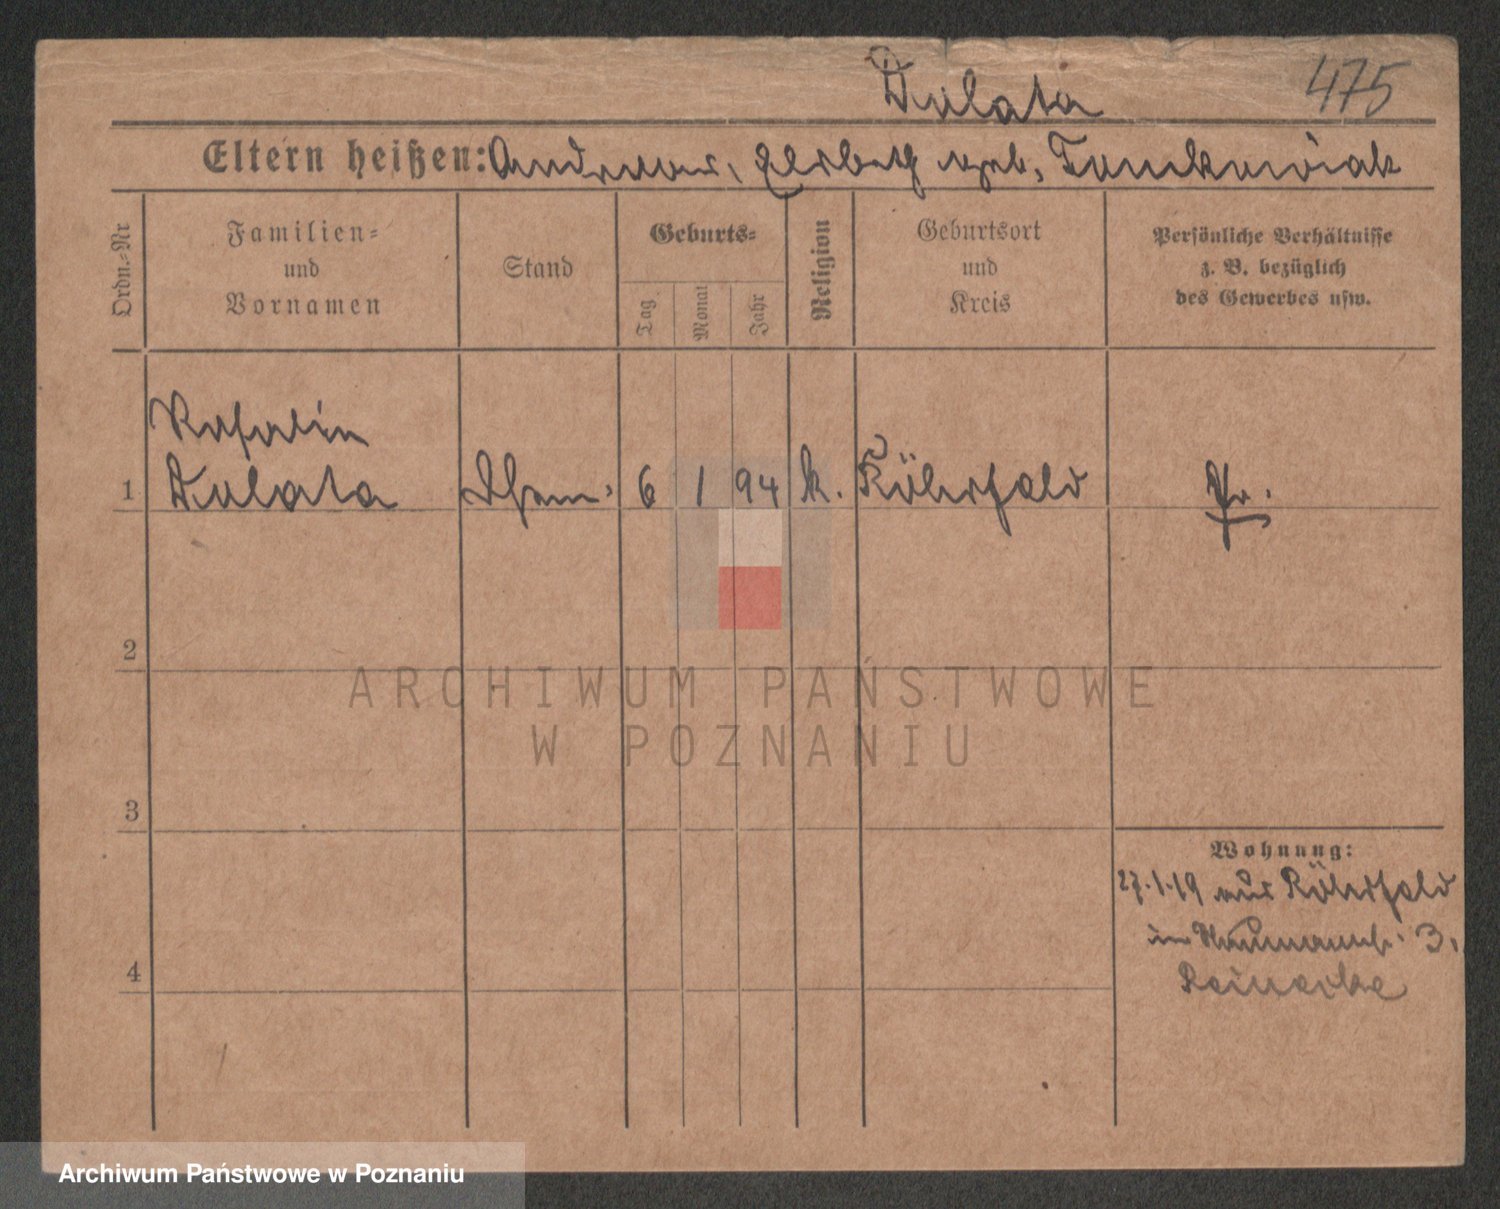 Dulata 475
Eltern heißen: Andreas, Elsbeth geb. Tonikowiak
Ordn.-Nr
Familien-
und
Vornamen
Stand
Geburts-
Tag
Monat
Jahr
Religion
Geburtsort
und
Kreis
Persönliche Verhältnisse
z. B. bezüglich
des Gewerbes usw.
Rosalie
1 Dulata 6 1 94 k. Röhrfeld Pr.
2
3
4
Wohnung:
27.1.19 aus Röhrfeld
in Naumannstr. 3.
Reinecke
ARCHIWUM PAŃSTWOWE
W POZNANIU
Archiwum Państwowe w Poznaniu